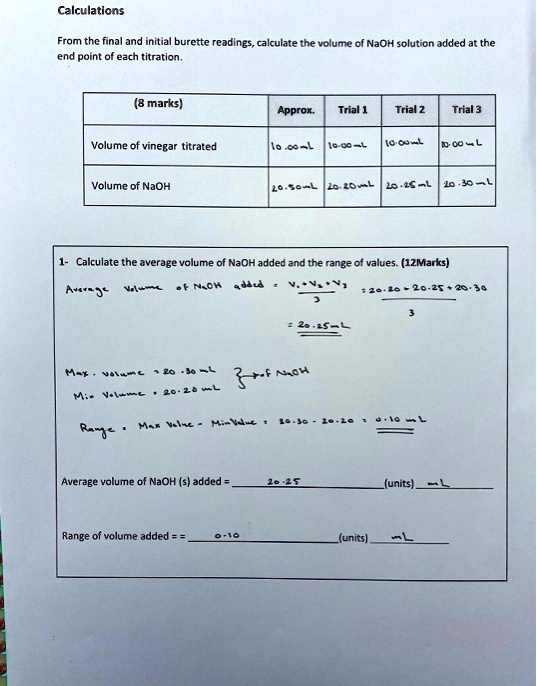 Calculations
From the final and initial burette readings, calculate the volume of NaOH solution added at the
end point of each titration.
(8 marks) Approx. Trial 1 Trial 2 Trial 3
Volume of vinegar titrated 10.00mL 10.00mL 10.00mL 10.00mL
Volume of NaOH 20.50mL 20.20mL 20.25mL 20.30mL
1- Calculate the average volume of NaOH added and the range of values. (12Marks)
Average Volume of NaOH added = V₁+V₂+V₃ = 20.20 + 20.25 + 20.30
3 3
= 20.25mL
Max. volume = 20.30 mL
} → of NaOH
Min Volume = 20.20 mL
Range = Max Value - Min Value = 20.30 - 20.20 = 0.10 mL
Average volume of NaOH (s) added = 20.25 (units) mL
Range of volume added = = 0.10 (units) mL